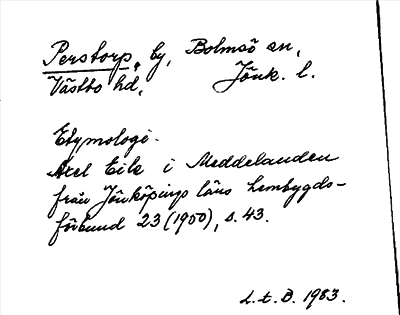 Perstorp, by, Bolmsö sn,
Västbo hd, Jönk. l.
Etymologi.
Axel Eik i Meddelanden
från Jönköpings läns hembygds-
förbund 23 (1950), s. 43.
L.t.B. 1983.